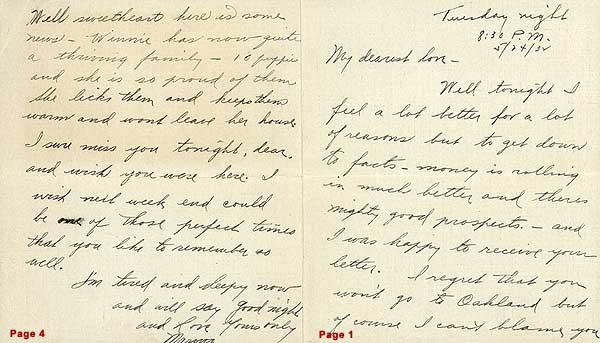 Well sweetheart here is some
news - Winnie has now quite
a thriving family - 10 puppies
and she is so proud of them
She licks them and keeps them
warm and wont leave her house
I sure miss you tonight, dear,
and wish you were here. I
wish next week end could
be one of those perfect times
that you like to remember so
well.
I'm tired and sleepy now
and will say good night
and Love Yours only
Page 4
Tuesday night
8:30 P.M.
5/24/32
My dearest love -
Well tonight I
feel a lot better for a lot
of reasons but to get down
to facts - money is rolling
in much better and theres
mighty good prospects. - and
I was happy to receive your
letter. I regret that you
won't go to Oakland but
of course I can't blame you
Page 1